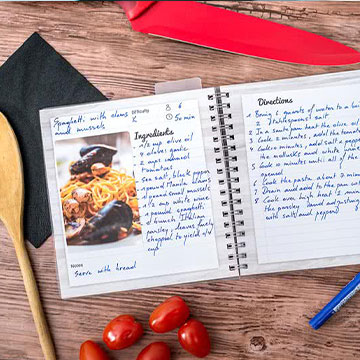 Spaghetti with clams
and mussels
Difficulty
6
50 min
Ingredients
1/2 cup olive oil
4 clove garlic
2 cups canned
tomatoes
Sea salt, black pepper
1 pound Manila clams
1 pound small mussels
1/2 cup white wine
1 pound spaghetti
1 bunch Italian
parsley, leaves finely
chopped to yield 1/4
cup
Notes
Serve with bread
Directions
1 Bring 6 quarts of water to a bo
2 tablespoons salt
2 In a sauté pan heat the olive oil
3 Cook 2 minutes, add the
4 Cook 10 minutes, add salt & pepp
the mollusks and white
5 Cook 10 minutes until all
opened
6 Cook the pasta about 7 minu
7 Drain and add to the pan
8 Cook over high heat
the parsley and adjusting
with salt and pepper